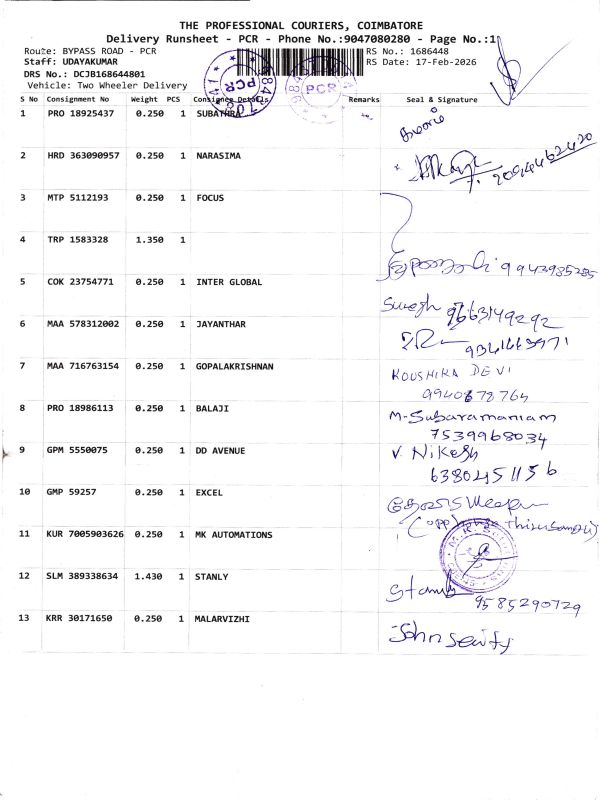 THE PROFESSIONAL COURIERS, COIMBATORE
Delivery Runsheet - PCR - Phone No.:9047080280 - Page No.:1
Route: BYPASS ROAD - PCR
RS No.: 1686448
Staff: UDAYAKUMAR
RS Date: 17-Feb-2026
DRS No.: DCJB168644801
Vehicle: Two Wheeler Delivery
PCR
PCR
S No Consignment No Weight PCS Consignee Details Remarks Seal & Signature
1 PRO 18925437 0.250 1 SUBATHRA
2 HRD 363090957 0.250 1 NARASIMA
3 MTP 5112193 0.250 1 FOCUS
4 TRP 1583328 1.350 1
9942935285
5 COK 23754771 0.250 1 INTER GLOBAL
Suregh
6 MAA 578312002 0.250 1 JAYANTHAR
7 MAA 716763154 0.250 1 GOPALAKRISHNAN KOUSHIKA DEVI
9940878764
8 PRO 18986113 0.250 1 BALAJI M-Subaramaniam
7539968034
9 GPM 5550075 0.250 1 DD AVENUE V. Nikesh
6380451156
10 GMP 59257 0.250 1 EXCEL
11 KUR 7005903626 0.250 1 MK AUTOMATIONS
12 SLM 389338634 1.430 1 STANLY
9585290729
13 KRR 30171650 0.250 1 MALARVIZHI
John